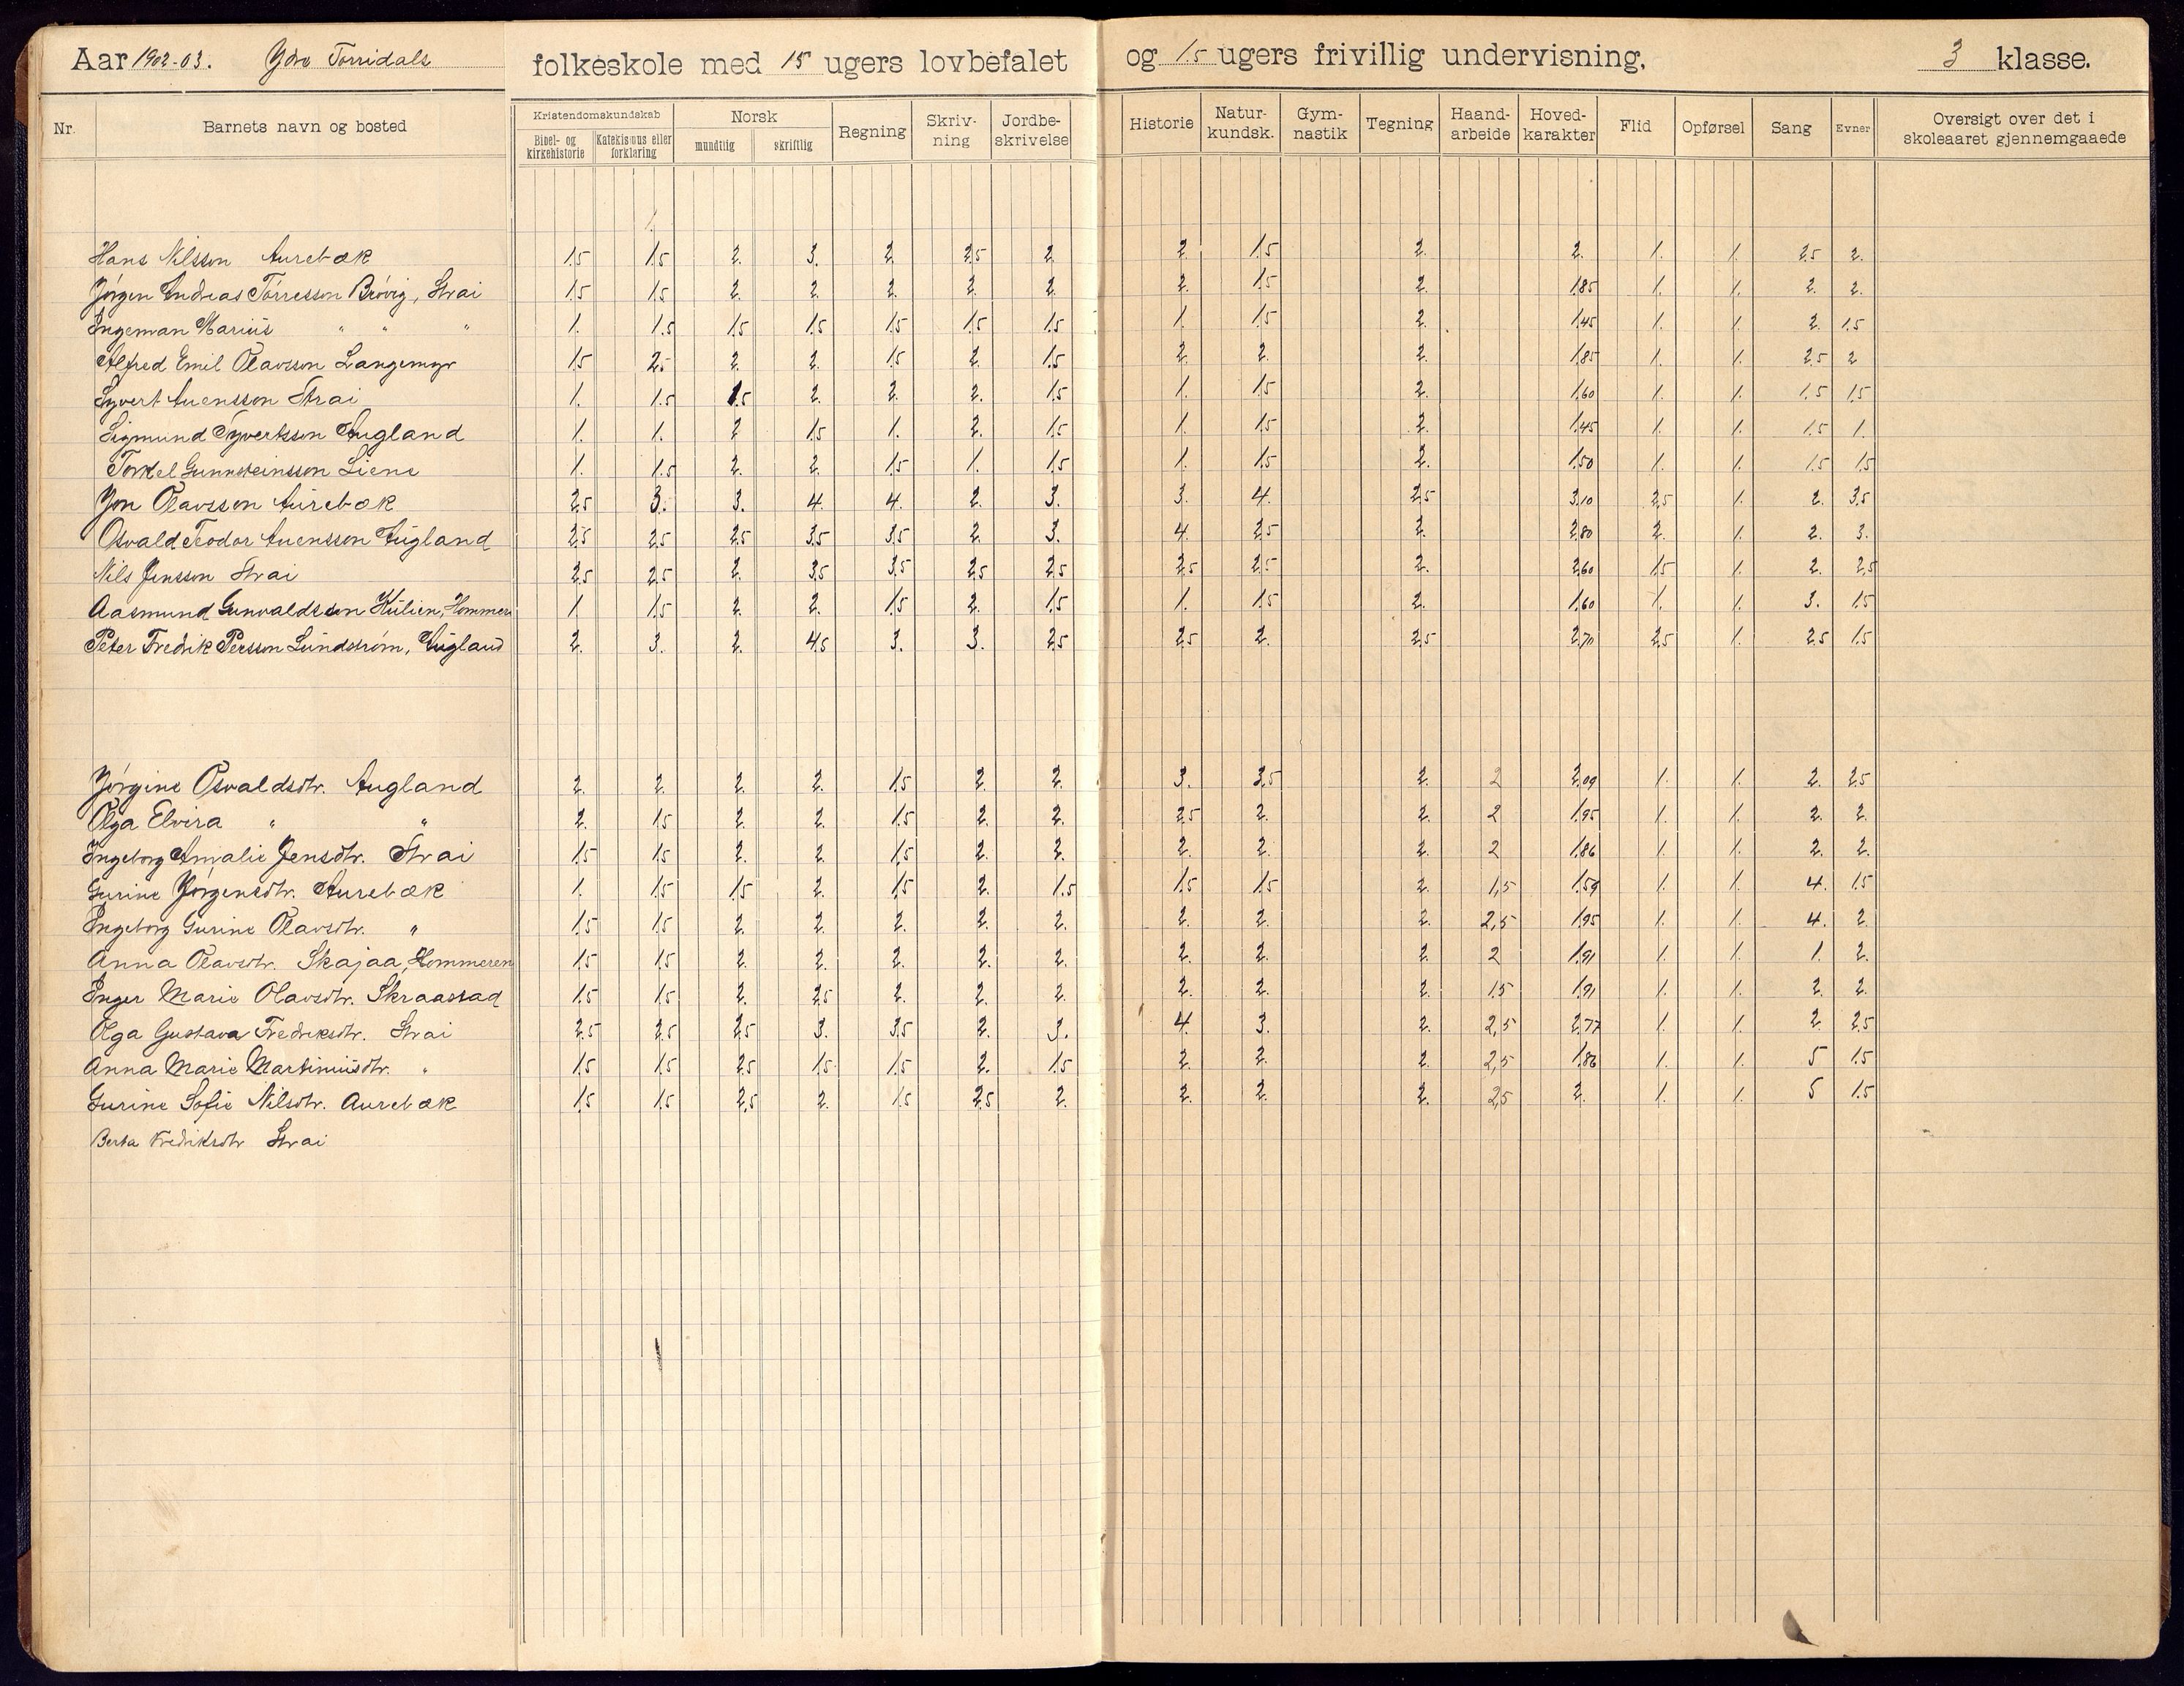 Aar 1902-03. Ydre Torridals folkeskole med 15 ugers lovbefalet og 15 ugers frivillig undervisning, 3 klasse.
Nr. Barnets navn og bosted Kristendomskundskab Bibel- og kirkehistorie Katekismus eller forklaring Norsk mundtlig skriftlig Regning Skriv-ning Jordbe-skrivelse Historie Natur-kundsk. Gym-nastik Tegning Haand-arbeide Hoved-karakter Flid Opførsel Sang Evner Oversigt over det i skoleaaret gjennemgaaede
Hans Nilsson Aurebæk 1,5 1,5 2. 3. 2. 2,5 2. 2. 1,5 2. 2. 1. 1. 2,5 2.
Jørgen Andreas Tørresson Brøvig, Strai 1,5 1,5 2. 2. 2. 2. 2. 2. 1,5 2. 1,85 1. 1. 2. 2.
Ingeman Marius " " " 1. 1.5 1,5 1,5 1,5 1,5 1,5 1. 1,5 2. 1,45 1. 1. 2. 1,5
Alfred Emil Olavsson Langemyr 1,5 2,5 2. 2. 1,5 2. 1,5 2. 2. 2. 1,85 1. 1. 2,5 2
Syvert Auensson Strai 1. 1.5 1.5 2. 2. 2. 1,5 1. 1,5 2. 1,60 1. 1. 1,5 1,5
Sigmund Syvertsson Augland 1. 1. 2 1,5 1. 2. 1,5 1. 1,5 2. 1,45 1. 1. 1,5 1.
Torkel Gunnsteinsson Liene 1. 1.5 2. 2. 1,5 1. 1,5 1. 1,5 2. 1,50 1. 1. 1,5 1,5
Jon Olavsson Aurebæk 2,5 3. 3. 4. 4. 2. 3. 3. 4. 2,5 3,10 2,5 1. 2. 3,5
Osvald Teodor Auensson Augland 2,5 2,5 2,5 3,5 3,5 2. 3. 4. 2,5 2. 2,80 2. 1. 2. 3.
Nils Jensson Strai 2,5 2,5 2. 3,5 3,5 2,5 2,5 2,5 2,5 2. 2,60 1,5 1. 2. 2,5
Aasmund Gunvaldsson Kulien, Hommeren 1 1,5 2. 2. 1,5 2. 1,5 1. 1,5 2. 1,60 1. 1. 3. 1,5
Peter Fredrik Persson Lundstrøm, Augland 2. 3. 2. 4,5 3. 3. 2,5 2,5 2. 2,5 2,70 2,5 1. 2,5 1,5
Jørgine Osvaldsdtr. Augland 2. 2. 2. 2. 1,5 2. 2. 3. 3,5 2. 2 2,09 1. 1. 2. 2,5
Olga Elvira " " 2. 1,5 2. 2. 1,5 2. 2. 2,5 2. 2. 2 1,95 1. 1. 2. 2.
Ingeborg Amalie Jensdtr. Strai 1,5 1,5 2. 2. 1,5 2. 2. 2. 2. 2. 2 1,86 1. 1. 2. 2.
Gurine Jørgensdtr. Aurebæk 1. 1,5 1,5 2. 1,5 2. 1.5 1,5 1,5 2. 1,5 1,59 1. 1. 4. 1,5
Ingeborg Gurine Olavsdtr. " 1,5 1,5 2. 2. 2. 2. 2. 2. 2. 2. 2,5 1,95 1. 1. 4. 2.
Anna Olavsdtr. Skajaa, Hommeren 1,5 1,5 2. 2. 2. 2. 2. 2. 2. 2. 2 1,91 1. 1. 1. 2.
Inger Marie Olavsdtr. Skraastad 1,5 1,5 2. 2,5 2. 2. 2. 2. 2. 2. 1,5 1,91 1. 1. 2. 2.
Olga Gustava Fredriksdtr. Strai 2,5 2,5 2,5 3. 3,5 2. 3. 4. 3. 2. 2,5 2,77 1. 1. 2 2,5
Anna Marie Martiniusdtr. " 1,5 1,5 2,5 1,5 1,5 2. 1,5 2. 2. 2. 2,5 1,86 1. 1. 5 1,5
Gurine Sofie Nilsdtr. Aurebæk 1,5 1,5 2,5 2. 1,5 2,5 2. 2. 2. 2. 2,5 2. 1. 1. 5 1.5
Berta Fredriksdtr Strai